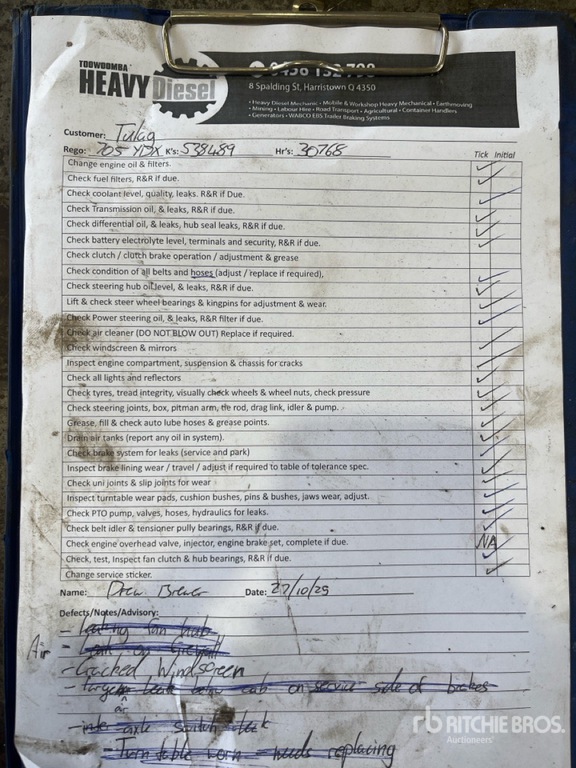 TOOWOOMBA
HEAVY Diesel
0456 152 798
8 Spalding St, Harristown Q 4350
• Heavy Diesel Mechanic • Mobile & Workshop Heavy Mechanical • Earthmoving
• Mining • Labour Hire • Road Transport • Agricultural • Container Handlers
• Generators • WABCO EBS Trailer Braking Systems
Customer: Tulag
Rego: 705 YDX K's: 538489 Hr's: 30768
Tick Initial
Change engine oil & filters.
Check fuel filters, R&R if due.
Check coolant level, quality, leaks. R&R if Due.
Check Transmission oil, & leaks, R&R if due.
Check differential oil, & leaks, hub seal leaks, R&R if due.
Check battery electrolyte level, terminals and security, R&R if due.
Check clutch / clutch brake operation / adjustment & grease
Check condition of all belts and hoses (adjust / replace if required),
Check steering hub oil level, & leaks, R&R if due.
Lift & check steer wheel bearings & kingpins for adjustment & wear.
Check Power steering oil, & leaks, R&R filter if due.
Check air cleaner (DO NOT BLOW OUT) Replace if required.
Check windscreen & mirrors
Inspect engine compartment, suspension & chassis for cracks
Check all lights and reflectors
Check tyres, tread integrity, visually check wheels & wheel nuts, check pressure
Check steering joints, box, pitman arm, tie rod, drag link, idler & pump.
Grease, fill & check auto lube hoses & grease points.
Drain air tanks (report any oil in system).
Check brake system for leaks (service and park)
Inspect brake lining wear / travel / adjust if required to table of tolerance spec.
Check uni joints & slip joints for wear
Inspect turntable wear pads, cushion bushes, pins & bushes, jaws wear, adjust.
Check PTO pump, valves, hoses, hydraulics for leaks.
Check belt idler & tensioner pully bearings, R&R if due.
Check engine overhead valve, injector, engine brake set, complete if due. NA
Check, test, Inspect fan clutch & hub bearings, R&R if due.
Change service sticker.
Name: Drew Brewer Date: 27/10/25
Defects/Notes/Advisory:
- leaking fan hub
Air - Leak on
- Cracked Windscreen
- leak below cab on service side of brakes
air
- inter axle switch leak
- Turn table worn - needs replacing
rb RITCHIE BROS.
Auctioneers